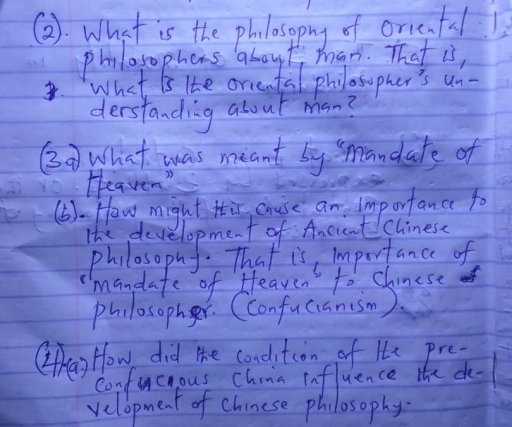 (2). What is the philosophy of Oriental
philosophers about man. That is,
what is the oriental philosopher's un-
derstanding about man?
(3a) What was meant by "Mandate of
Heaven"
(b). How might this cause an importance to
the development of Ancient Chinese
philosophy. That is, importance of
"mandate of Heaven" to Chinese
philosopher. (Confucianism).
(4)(a) How did the condition of the pre-
Confucious China influence the de-
velopment of Chinese philosophy.